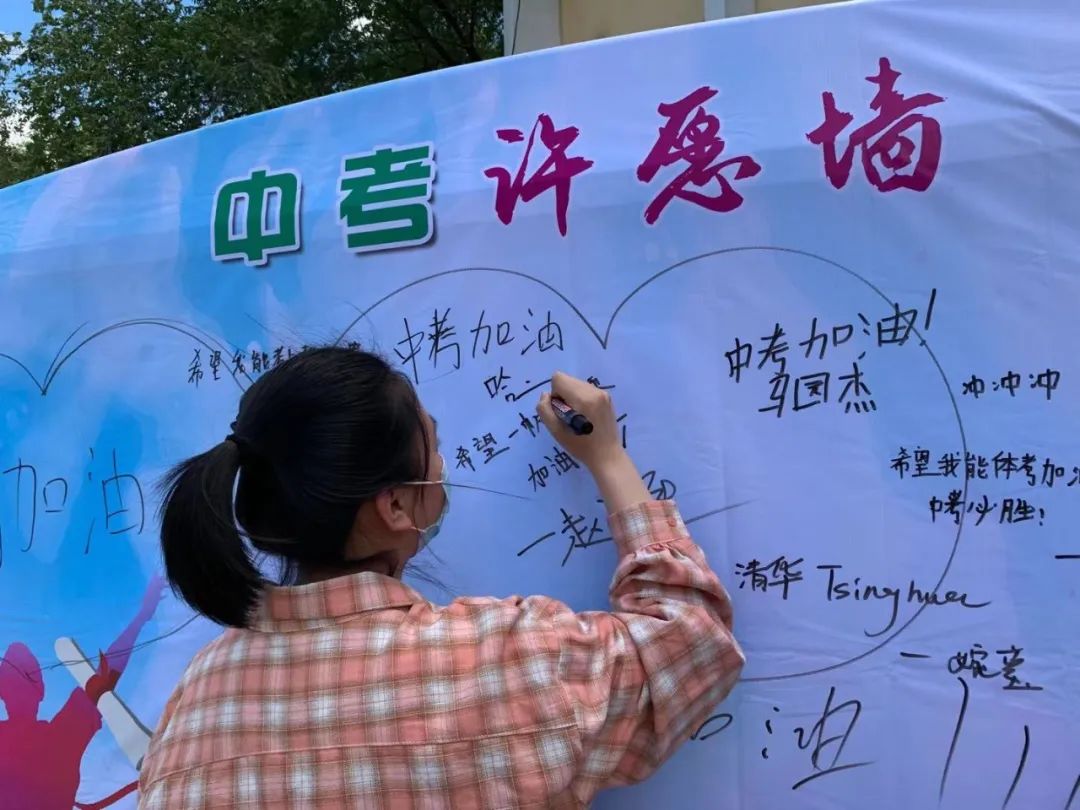 中考许愿墙
希望我能考
中考加油
哈
希望一
加油
一赵
中考加油!
马园杰
冲冲冲
希望我能体考加油
中考必胜!
清华 Tsinghua
加油
油